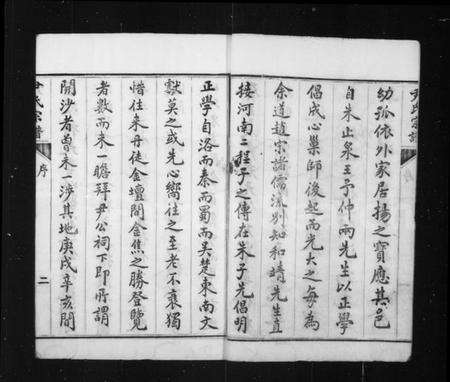 尹氏宗譜
幼孤依外家居揚之寶應其邑
自朱止泉王予仲兩先生以正學
倡成心巢師後起而光大之每為
余道趙宋諸儒流別知和靖先生直
接河南二程子之傳在朱子先倡明
正學自洛而秦而蜀而吳楚東南文
獻莫之或先心嚮往之至老不衰獨
惜往來丹徒金壇間金焦之勝登覽
者數而未一瞻拜尹公祠下即所謂
開沙者曾未一涉其地庚戌辛亥間
尹氏宗譜
序
二